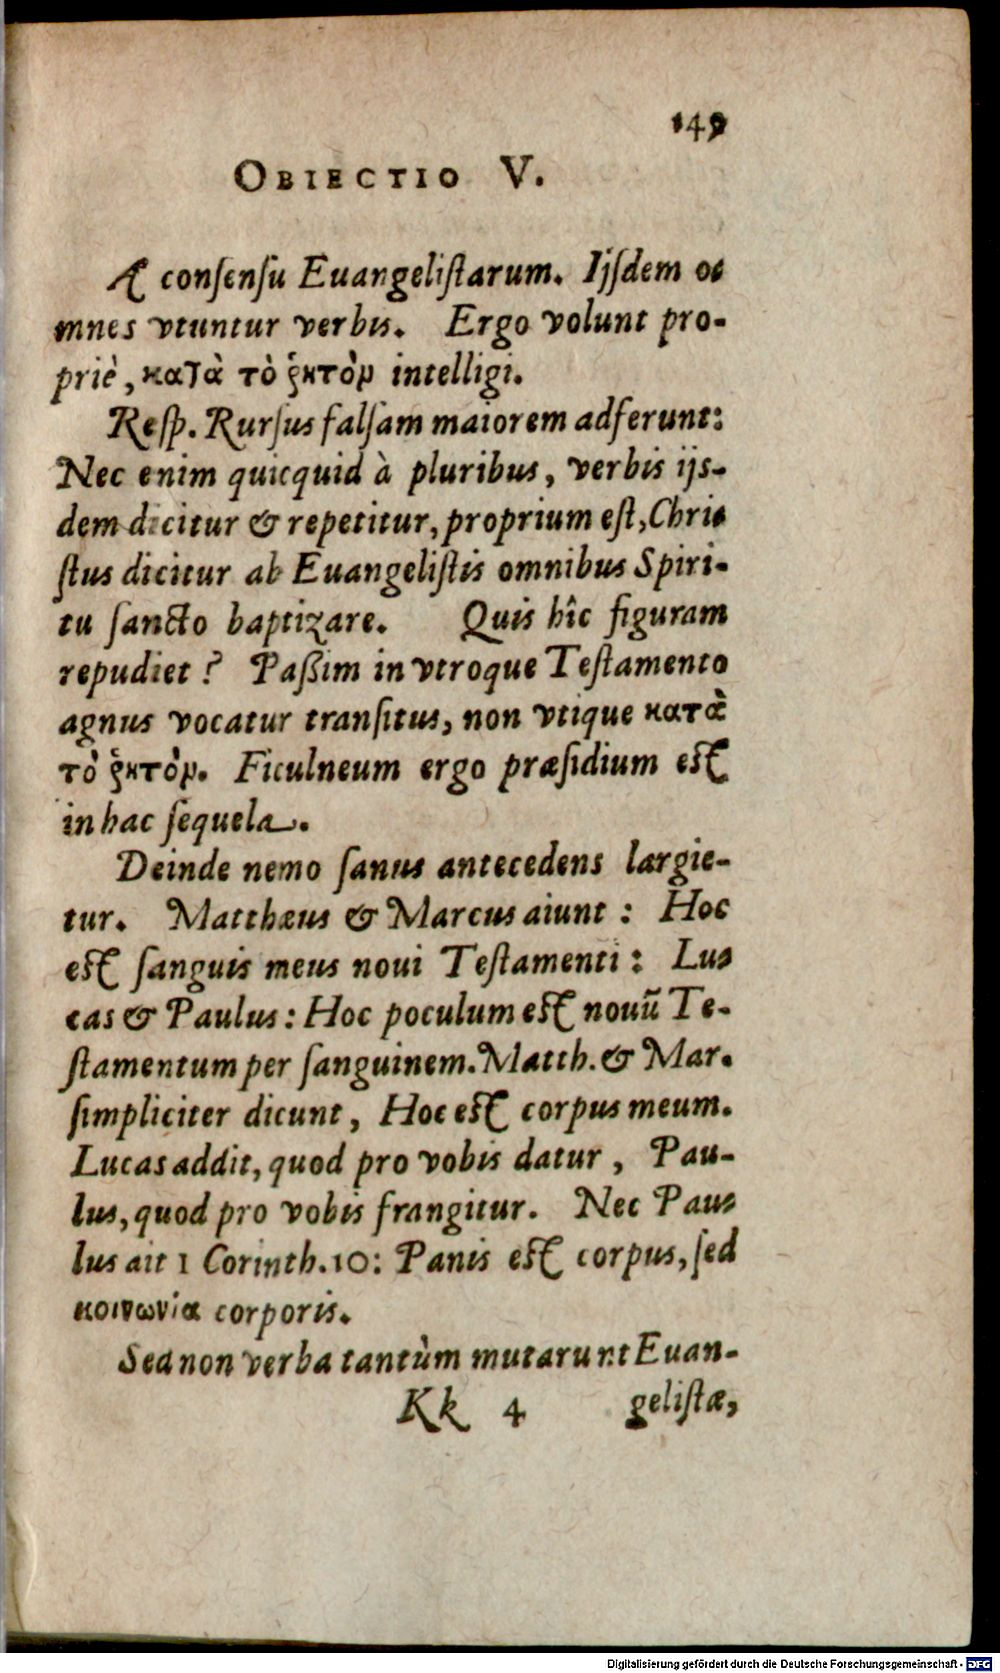 149
OBIECTIO V.
A consensu Euangelistarum. Iisdem o-
mnes vtuntur verbis. Ergo volunt pro-
priè, κατὰ τὸ ῥητὸν intelligi.
Resp. Rursus falsam maiorem adferunt:
Nec enim quicquid à pluribus, verbis ijs-
dem dicitur & repetitur, proprium est, Chri-
stus dicitur ab Euangelistis omnibus Spiri-
tu sancto baptizare. Quis hîc figuram
repudiet? Paßim in vtroque Testamento
agnus vocatur transitus, non vtique κατὰ
τὸ ῥητὸν. Ficulneum ergo præsidium est
in hac sequela.
Deinde nemo sanus antecedens largie-
tur. Matthæus & Marcus aiunt: Hoc
est sanguis meus noui Testamenti: Lu-
cas & Paulus: Hoc poculum est nouū Te-
stamentum per sanguinem. Matth. & Mar.
simpliciter dicunt, Hoc est corpus meum.
Lucas addit, quod pro vobis datur, Pau-
lus, quod pro vobis frangitur. Nec Pau-
lus ait 1 Corinth. 10: Panis est corpus, sed
κοινωνία corporis.
Sed non verba tantùm mutarunt Euan-
Kk 4 gelistæ,
Digitalisierung gefördert durch die Deutsche Forschungsgemeinschaft - DFG